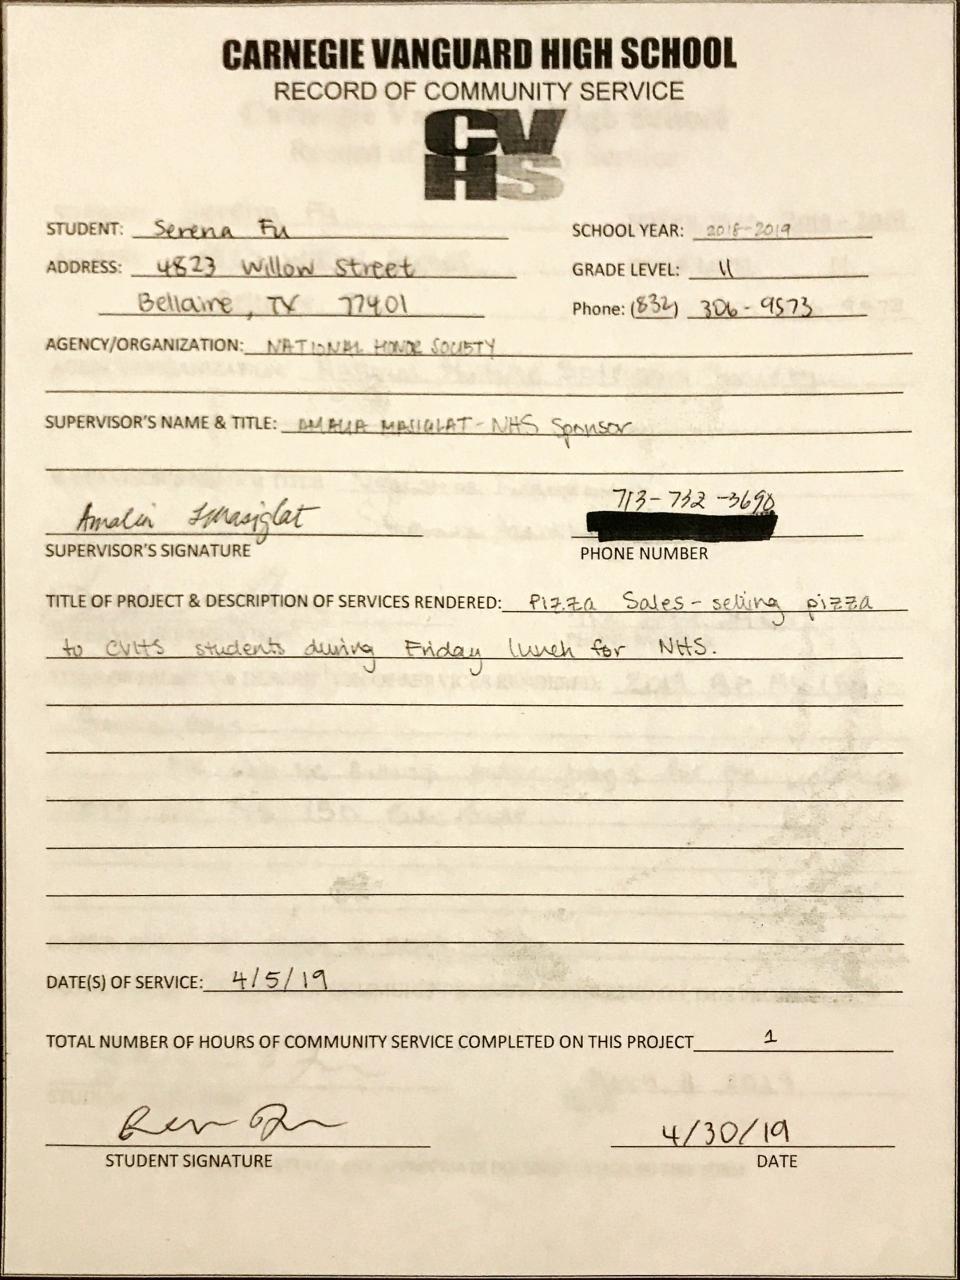 CARNEGIE VANGUARD HIGH SCHOOL
RECORD OF COMMUNITY SERVICE
CV
HS
STUDENT: Serena Fu SCHOOL YEAR: 2018-2019
ADDRESS: 4823 Willow Street GRADE LEVEL: 11
Bellaire, TX 77401 Phone: (832) 306-9573
AGENCY/ORGANIZATION: NATIONAL HONOR SOCIETY
SUPERVISOR'S NAME & TITLE: AMALIA MASIGLAT - NHS Sponsor
Amalia Masiglat 713-732-3690
SUPERVISOR'S SIGNATURE PHONE NUMBER
TITLE OF PROJECT & DESCRIPTION OF SERVICES RENDERED: Pizza Sales - selling pizza
to CVHS students during Friday lunch for NHS.
DATE(S) OF SERVICE: 4/5/19
TOTAL NUMBER OF HOURS OF COMMUNITY SERVICE COMPLETED ON THIS PROJECT 1
4/30/19
STUDENT SIGNATURE DATE